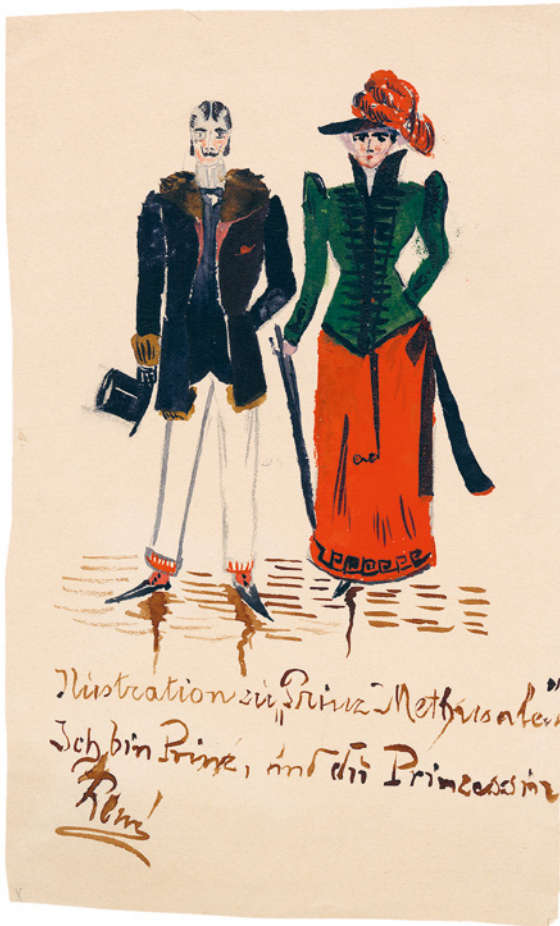 Illustration zu „Prinz Methusalem"
Ich bin Prinz, und du Prinzessin
René